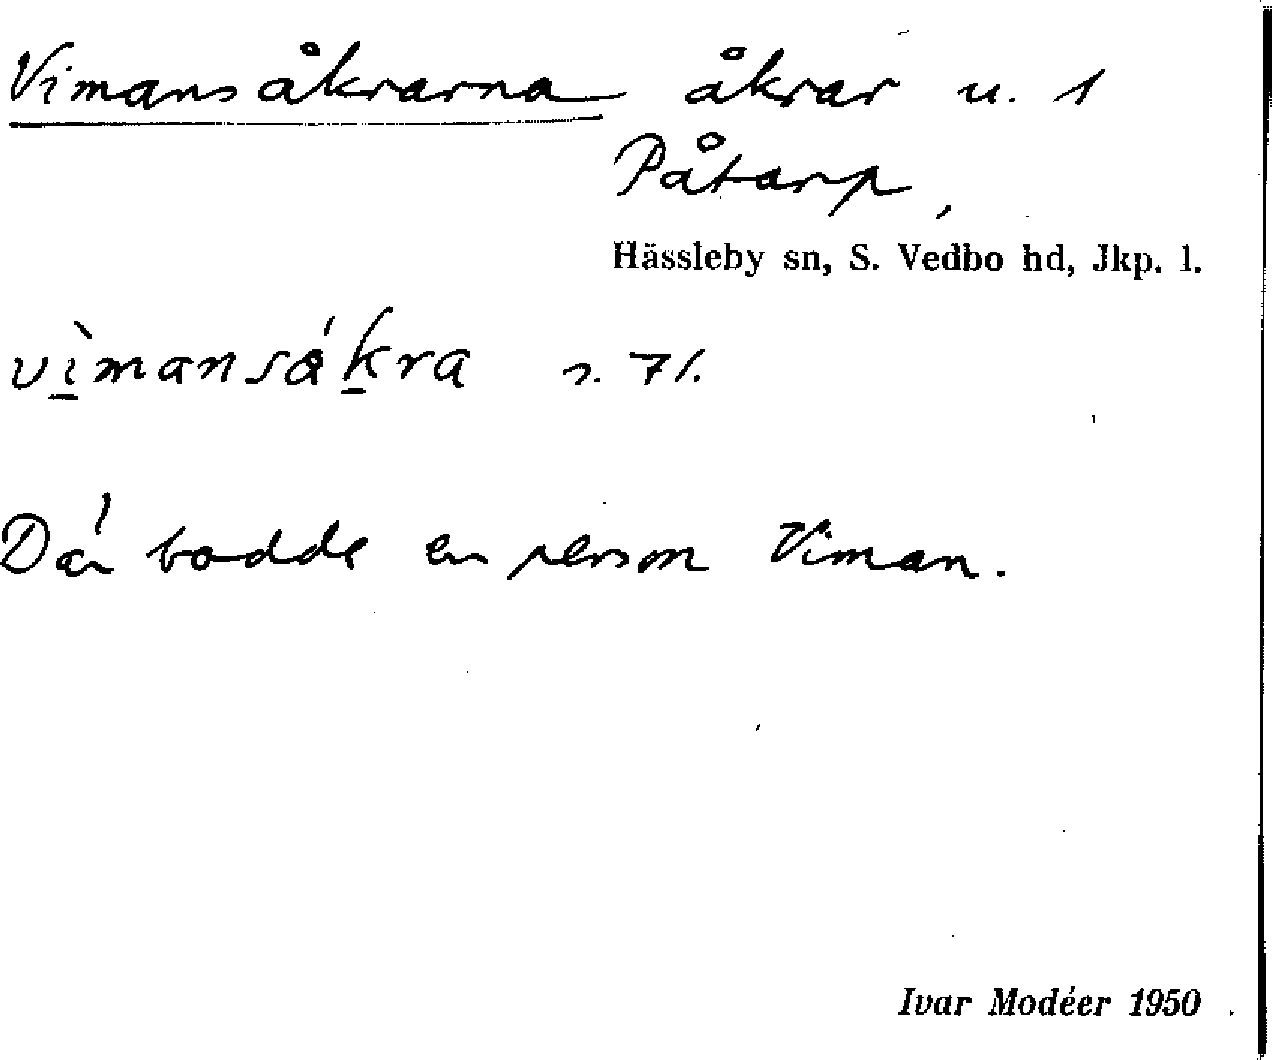 Vimansåkrarna åkrar u. 1
Påtarp,
Hässleby sn, S. Vedbo hd, Jkp. l.
vìmansákra
Där bodde en person Viman.
Ivar Modéer 1950